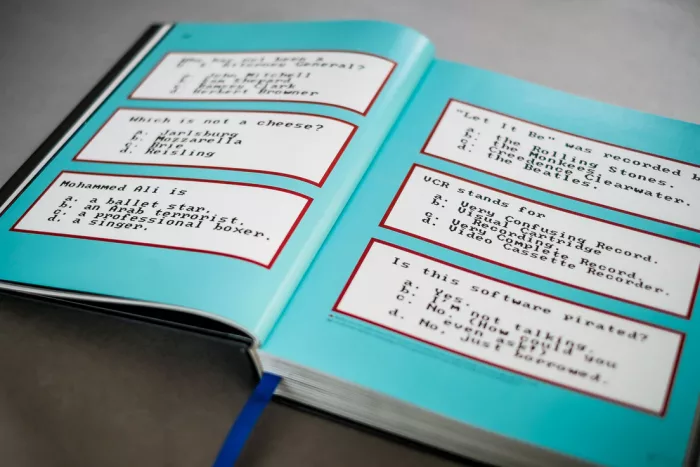 Who has not been a
U S Attorney General?
a. John Mitchell
b. Tom Shepard
c. Ramsey Clark
d. Herbert Browner
Which is not a cheese?
a. Jarlsburg
b. Mozzarella
c. Brie
d. Reisling
Mohammed Ali is
a. a ballet star.
b. an Arab terrorist.
c. a professional boxer.
d. a singer.
"Let It Be" was recorded b
a. the Rolling Stones.
b. the Monkees.
c. Creedence Clearwater.
d. the Beatles.
VCR stands for
a. Very Confusing Record.
b. Visual Cartridge
Recording.
c. Very Complete Record.
d. Video Cassette Recorder.
Is this software pirated?
a. Yes.
b. I'm not talking.
c. No. (How could you
even ask?)
d. No. Just borrowed.